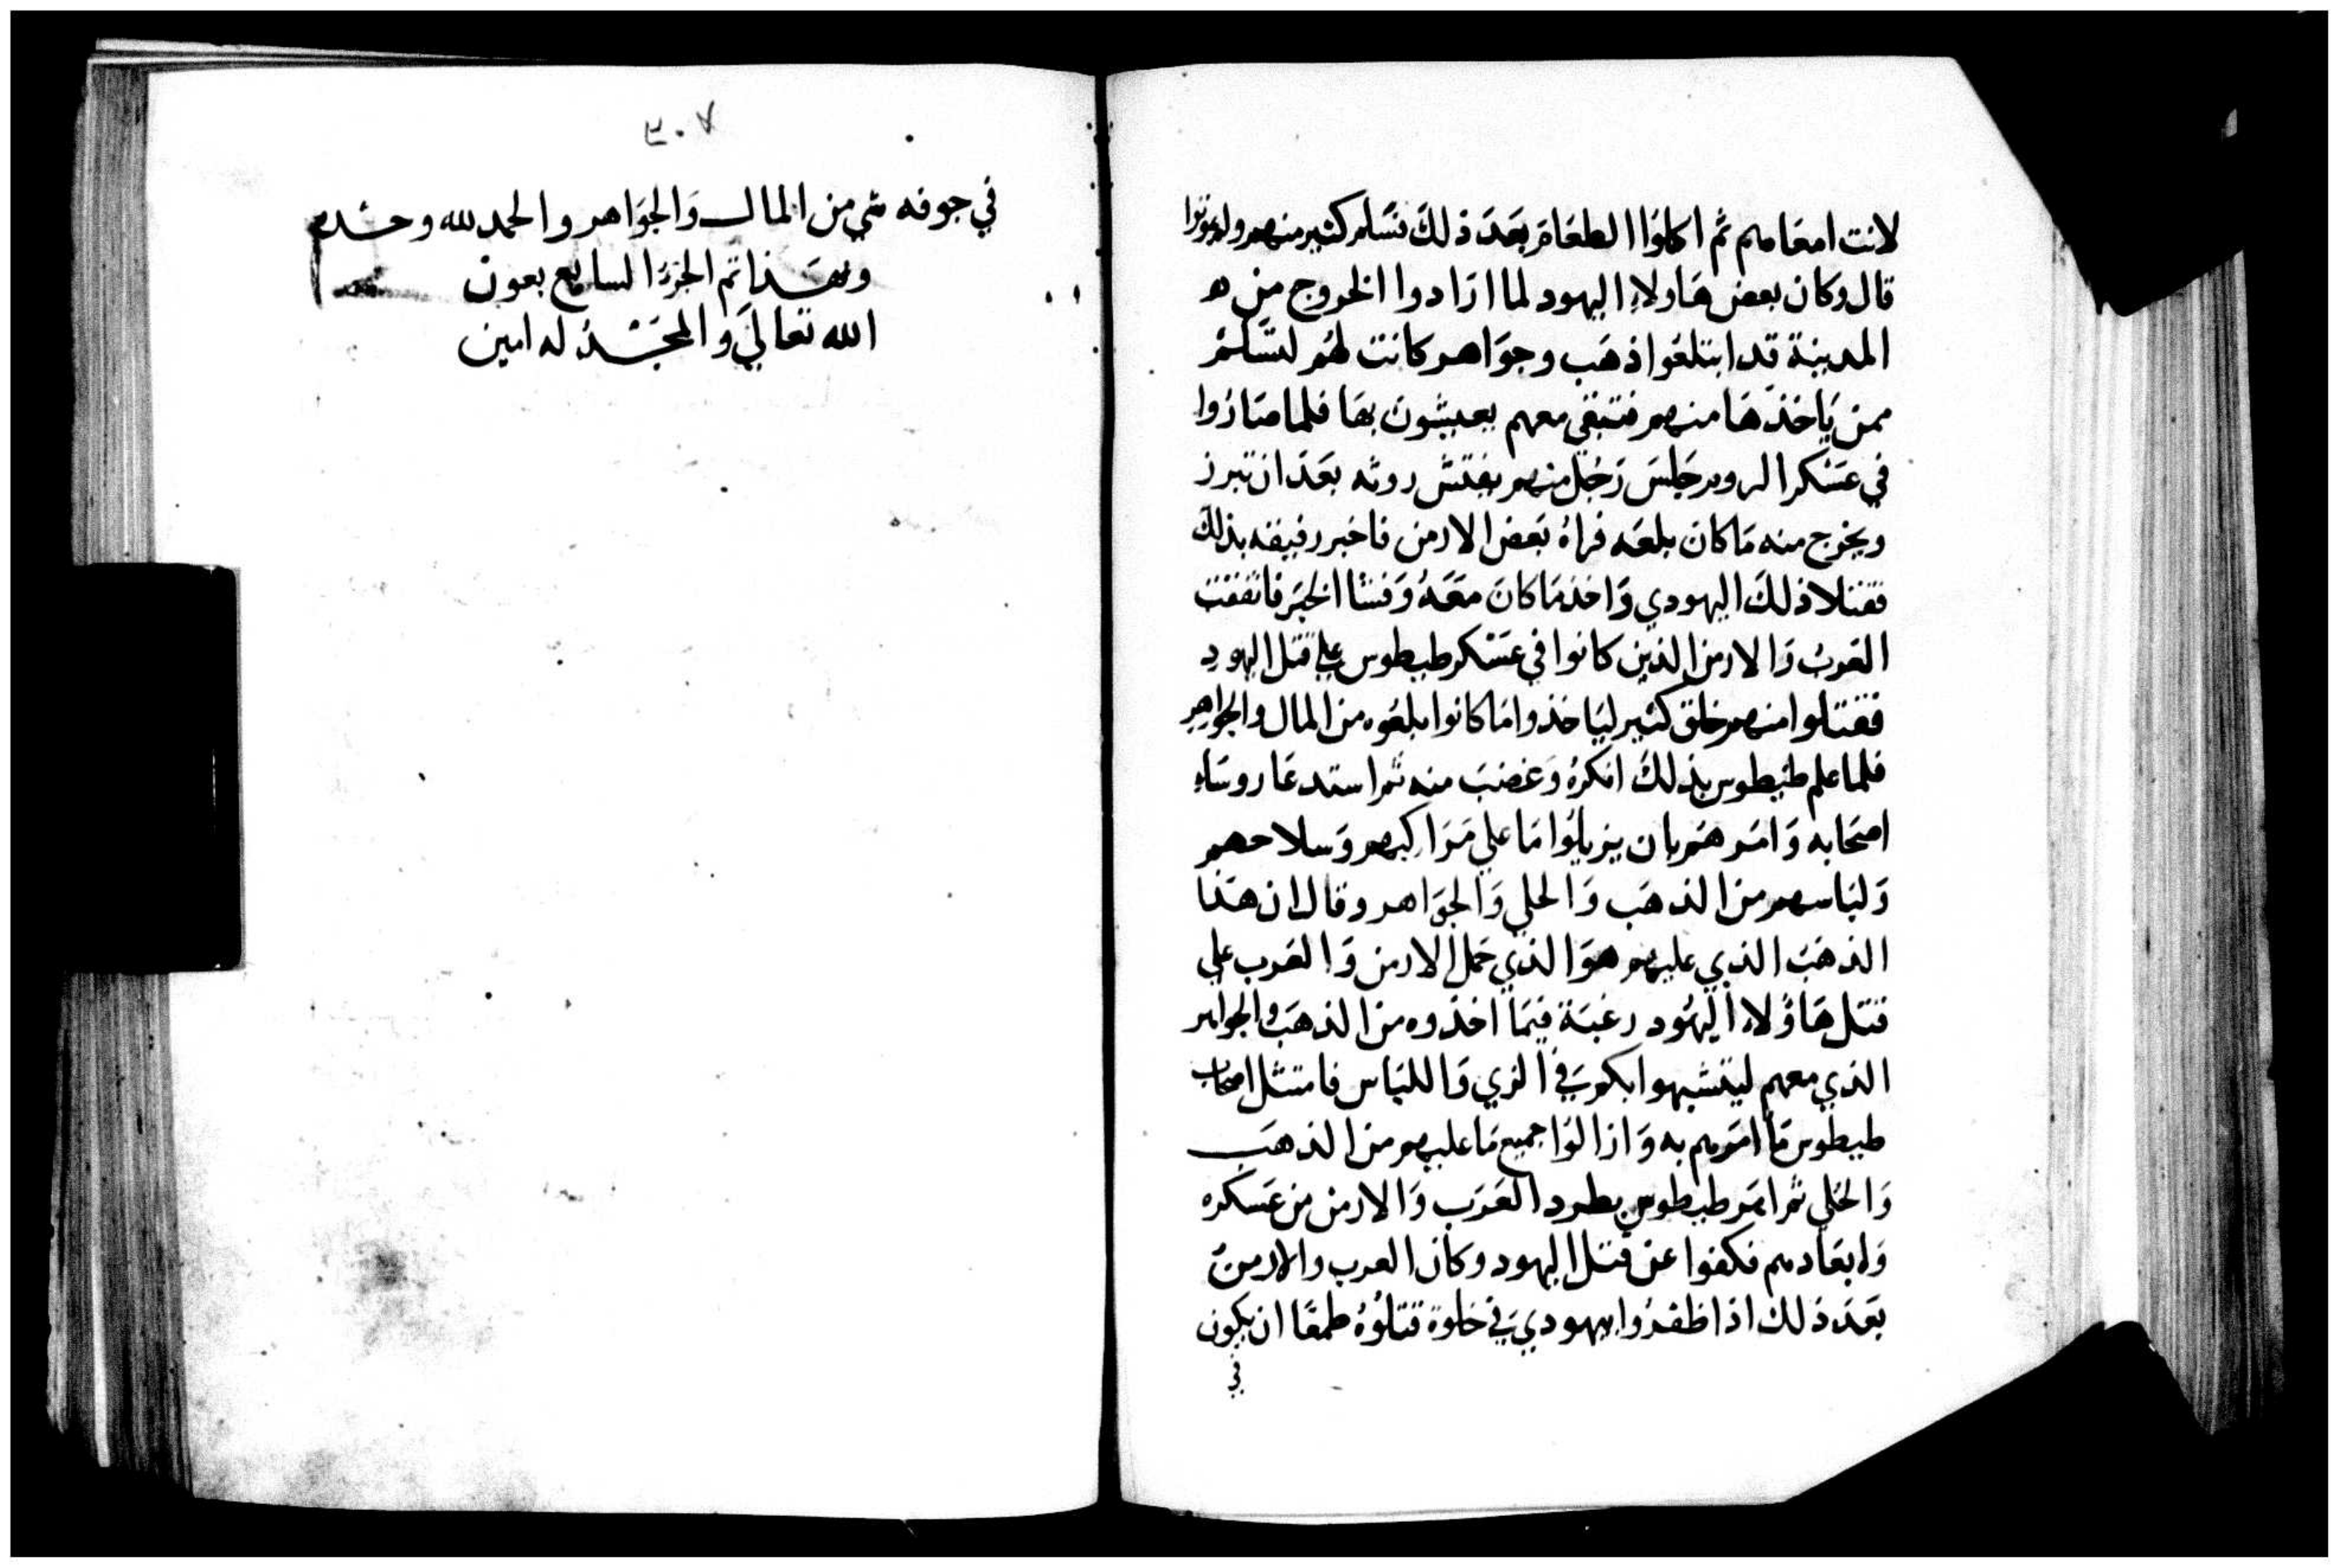 لانت امعاهم ثم اكلوا الطعام بعد ذلك فسلم كثير منهم ولم يموتوا
قال وكان بعض هاولاء اليهود لما ارادوا الخروج من ه
المدينة قد ابتلعوا ذهب وجواهر كانت لهم لتسلم
ممن ياخذها منهم فتبقي معهم يعيشون بها فلما صاروا
في عسكر الروم جلس رجل منهم يفتش روثه بعد ان تبرز
ويخرج منه ما كان بلعه فراه بعض الارمن فاخبر رفيقه بذلك
فقتلا ذلك اليهودي واخذ ما كان معه وفشا الخبر فاتفقت
العرب والارمن الذين كانوا في عسكر طيطوس علي قتل اليهود
فقتلوا منهم خلق كثير لياخذوا ما كانوا بلعوه من المال والجواهر
فلما علم طيطوس بذلك انكره وغضب منه ثم استدعا روساء
اصحابه وامرهم بان يزيلوا ما علي مراكبهم وسلاحهم
ولباسهم من الذهب والحلي والجواهر وقال ان هذا
الذهب الذي عليهم هو الذي حمل الارمن والعرب علي
قتل هاؤلاء اليهود رغبة فيما اخذوه من الذهب والجواهر
الذي معهم ليتشبهوا بكم في الزي واللباس فامتثل اصحاب
طيطوس ما امرهم به وازالوا جميع ما عليهم من الذهب
والحلي ثم امر طيطوس بطرد العرب والارمن من عسكره
وابعادهم فكفوا عن قتل اليهود وكان العرب والارمن
بعد ذلك اذا ظفروا بيهودي في خلوة قتلوه طمعا ان يكون
في
٣٠٧
في جوفه شي من المال والجواهر والحمد لله وحده
وبهذا تم الجزء السابع بعون
الله تعالي والمجد له امين